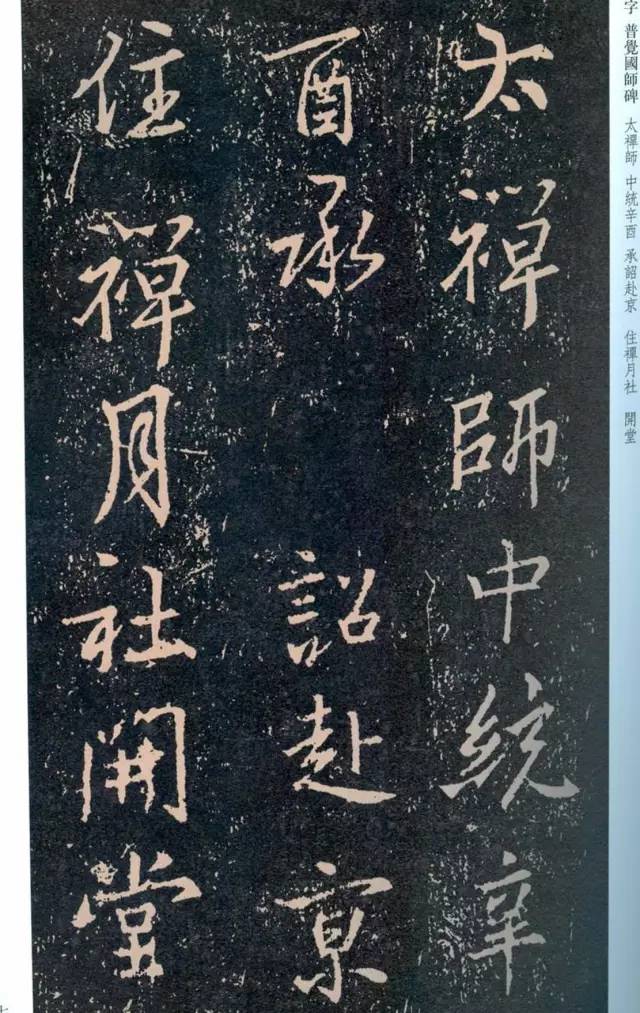 太禪師中統辛
酉承詔赴京
住禪月社開堂
字 普覺國師碑 太禪師 中統辛酉 承詔赴京 住禪月社 開堂